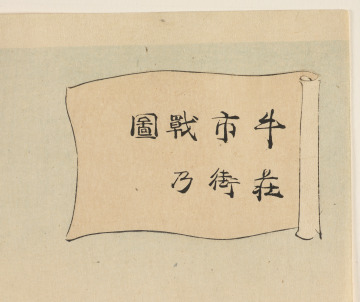 牛荘
市街
戰乃
圖